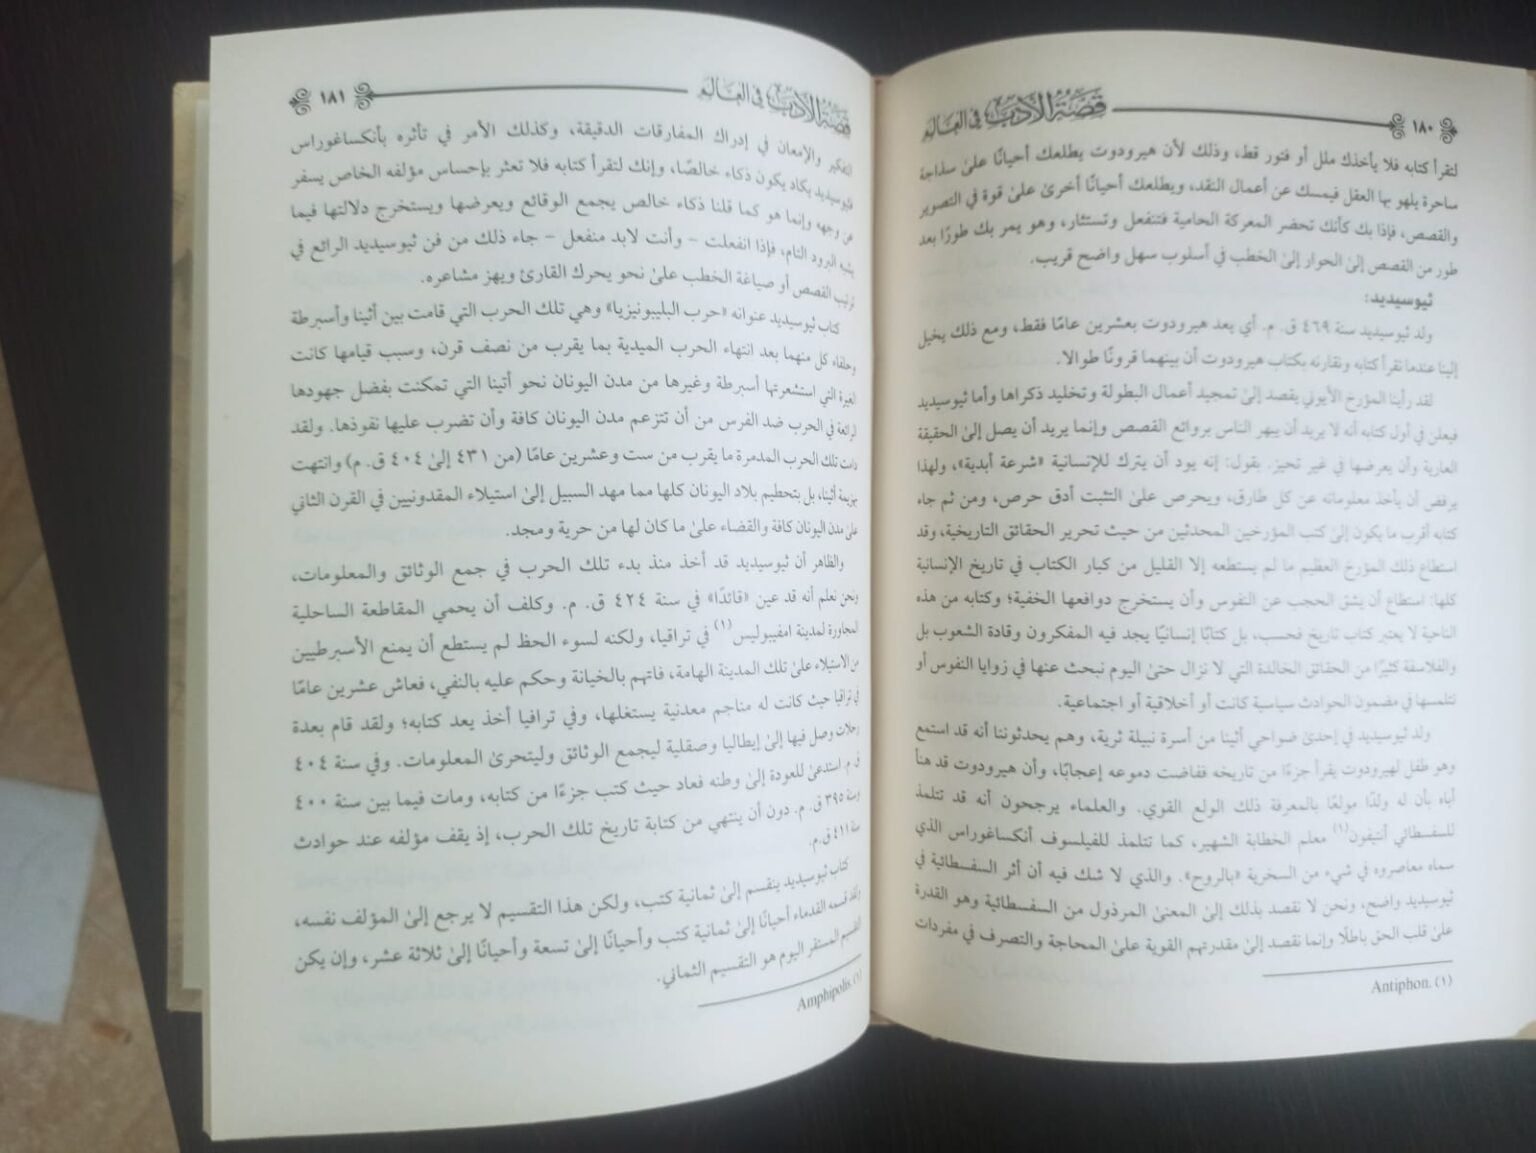 ١٨٠ قصة الأدب في العالم
لتقرأ كتابه فلا يأخذك ملل أو فتور قط، وذلك لأن هيرودوت يطلعك أحيانًا علىٰ سذاجة
ساحرة يلهو بها العقل فيمسك عن أعمال النقد، ويطلعك أحيانًا أخرىٰ علىٰ قوة في التصوير
والقصص، فإذا بك كأنك تحضر المعركة الحامية فتنفعل وتستثار، وهو يمر بك طورًا بعد
طور من القصص إلىٰ الحوار إلىٰ الخطب في أسلوب سهل واضح قريب.
ثيوسيديد:
ولد ثيوسيديد سنة ٤٦٩ ق. م. أي بعد هيرودوت بعشرين عامًا فقط، ومع ذلك يخيل
إلينا عندما نقرأ كتابه ونقارنه بكتاب هيرودوت أن بينهما قرونًا طوالا.
لقد رأينا المؤرخ الأيوني يقصد إلىٰ تمجيد أعمال البطولة وتخليد ذكراها وأما ثيوسيديد
فيعلن في أول كتابه أنه لا يريد أن يبهر الناس بروائع القصص وإنما يريد أن يصل إلىٰ الحقيقة
العارية وأن يعرضها في غير تحيز. يقول: إنه يود أن يترك للإنسانية «شرعة أبدية»، ولهذا
يرفض أن يأخذ معلوماته عن كل طارق، ويحرص علىٰ التثبت أدق حرص، ومن ثم جاء
كتابه أقرب ما يكون إلىٰ كتب المؤرخين المحدثين من حيث تحرير الحقائق التاريخية، وقد
استطاع ذلك المؤرخ العظيم ما لم يستطعه إلا القليل من كبار الكتاب في تاريخ الإنسانية
كلها: استطاع أن يشق الحجب عن النفوس وأن يستخرج دوافعها الخفية؛ وكتابه من هذه
الناحية لا يعتبر كتاب تاريخ فحسب، بل كتابًا إنسانيًا يجد فيه المفكرون وقادة الشعوب بل
والفلاسفة كثيرًا من الحقائق الخالدة التي لا نزال حتىٰ اليوم نبحث عنها في زوايا النفوس أو
نتلمسها في مضمون الحوادث سياسية كانت أو أخلاقية أو اجتماعية.
ولد ثيوسيديد في إحدىٰ ضواحي أثينا من أسرة نبيلة ثرية، وهم يحدثوننا أنه قد استمع
وهو طفل لهيرودوت يقرأ جزءًا من تاريخه ففاضت دموعه إعجابًا، وأن هيرودوت قد هنأ
أباه بأن له ولدًا مولعًا بالمعرفة ذلك الولع القوي. والعلماء يرجحون أنه قد تتلمذ
للسفسطائي أنتيفون(١) معلم الخطابة الشهير، كما تتلمذ للفيلسوف أنكساغوراس الذي
سماه معاصروه في شيء من السخرية «بالروح». والذي لا شك فيه أن أثر السفسطائية في
ثيوسيديد واضح، ونحن لا نقصد بذلك إلىٰ المعنىٰ المرذول من السفسطائية وهو القدرة
علىٰ قلب الحق باطلًا وإنما نقصد إلىٰ مقدرتهم القوية علىٰ المحاجة والتصرف في مفردات
(١) Antiphon.
قصة الأدب في العالم ١٨١
التفكير والإمعان في إدراك المفارقات الدقيقة، وكذلك الأمر في تأثره بأنكساغوراس
فثيوسيديد يكاد يكون ذكاء خالصًا، وإنك لتقرأ كتابه فلا تعثر بإحساس مؤلفه الخاص يسفر
عن وجهه وإنما هو كما قلنا ذكاء خالص يجمع الوقائع ويعرضها ويستخرج دلالتها فيما
يشبه البرود التام، فإذا انفعلت – وأنت لابد منفعل – جاء ذلك من فن ثيوسيديد الرائع في
ترتيب القصص أو صياغة الخطب علىٰ نحو يحرك القارئ ويهز مشاعره.
كتاب ثيوسيديد عنوانه «حرب البليبونيزيا» وهي تلك الحرب التي قامت بين أثينا وأسبرطة
وحلفاء كل منهما بعد انتهاء الحرب الميدية بما يقرب من نصف قرن، وسبب قيامها كانت
الغيرة التي استشعرتها أسبرطة وغيرها من مدن اليونان نحو أثينا التي تمكنت بفضل جهودها
الرائعة في الحرب ضد الفرس من أن تتزعم مدن اليونان كافة وأن تضرب عليها نفوذها. ولقد
دامت تلك الحرب المدمرة ما يقرب من ست وعشرين عامًا (من ٤٣١ إلىٰ ٤٠٤ ق. م) وانتهت
بهزيمة أثينا، بل بتحطيم بلاد اليونان كلها مما مهد السبيل إلىٰ استيلاء المقدونيين في القرن الثاني
علىٰ مدن اليونان كافة والقضاء علىٰ ما كان لها من حرية ومجد.
والظاهر أن ثيوسيديد قد أخذ منذ بدء تلك الحرب في جمع الوثائق والمعلومات،
ونحن نعلم أنه قد عين «قائدًا» في سنة ٤٢٤ ق. م. وكلف أن يحمي المقاطعة الساحلية
المجاورة لمدينة امفيبوليس(١) في تراقيا، ولكنه لسوء الحظ لم يستطع أن يمنع الأسبرطيين
من الاستيلاء علىٰ تلك المدينة الهامة، فاتهم بالخيانة وحكم عليه بالنفي، فعاش عشرين عامًا
في تراقيا حيث كانت له مناجم معدنية يستغلها، وفي تراقيا أخذ يعد كتابه؛ ولقد قام بعدة
رحلات وصل فيها إلىٰ إيطاليا وصقلية ليجمع الوثائق وليتحرىٰ المعلومات. وفي سنة ٤٠٤
ق م. استدعىٰ للعودة إلىٰ وطنه فعاد حيث كتب جزءًا من كتابه، ومات فيما بين سنة ٤٠٠
وسنة ٣٩٥ ق. م. دون أن ينتهي من كتابة تاريخ تلك الحرب، إذ يقف مؤلفه عند حوادث
سنة ٤١١ ق. م.
كتاب ثيوسيديد ينقسم إلىٰ ثمانية كتب، ولكن هذا التقسيم لا يرجع إلىٰ المؤلف نفسه،
ولقد قسمه القدماء أحيانًا إلىٰ ثمانية كتب وأحيانًا إلىٰ تسعة وأحيانًا إلىٰ ثلاثة عشر، وإن يكن
التقسيم المستقر اليوم هو التقسيم الثماني.
(١) Amphipolis.